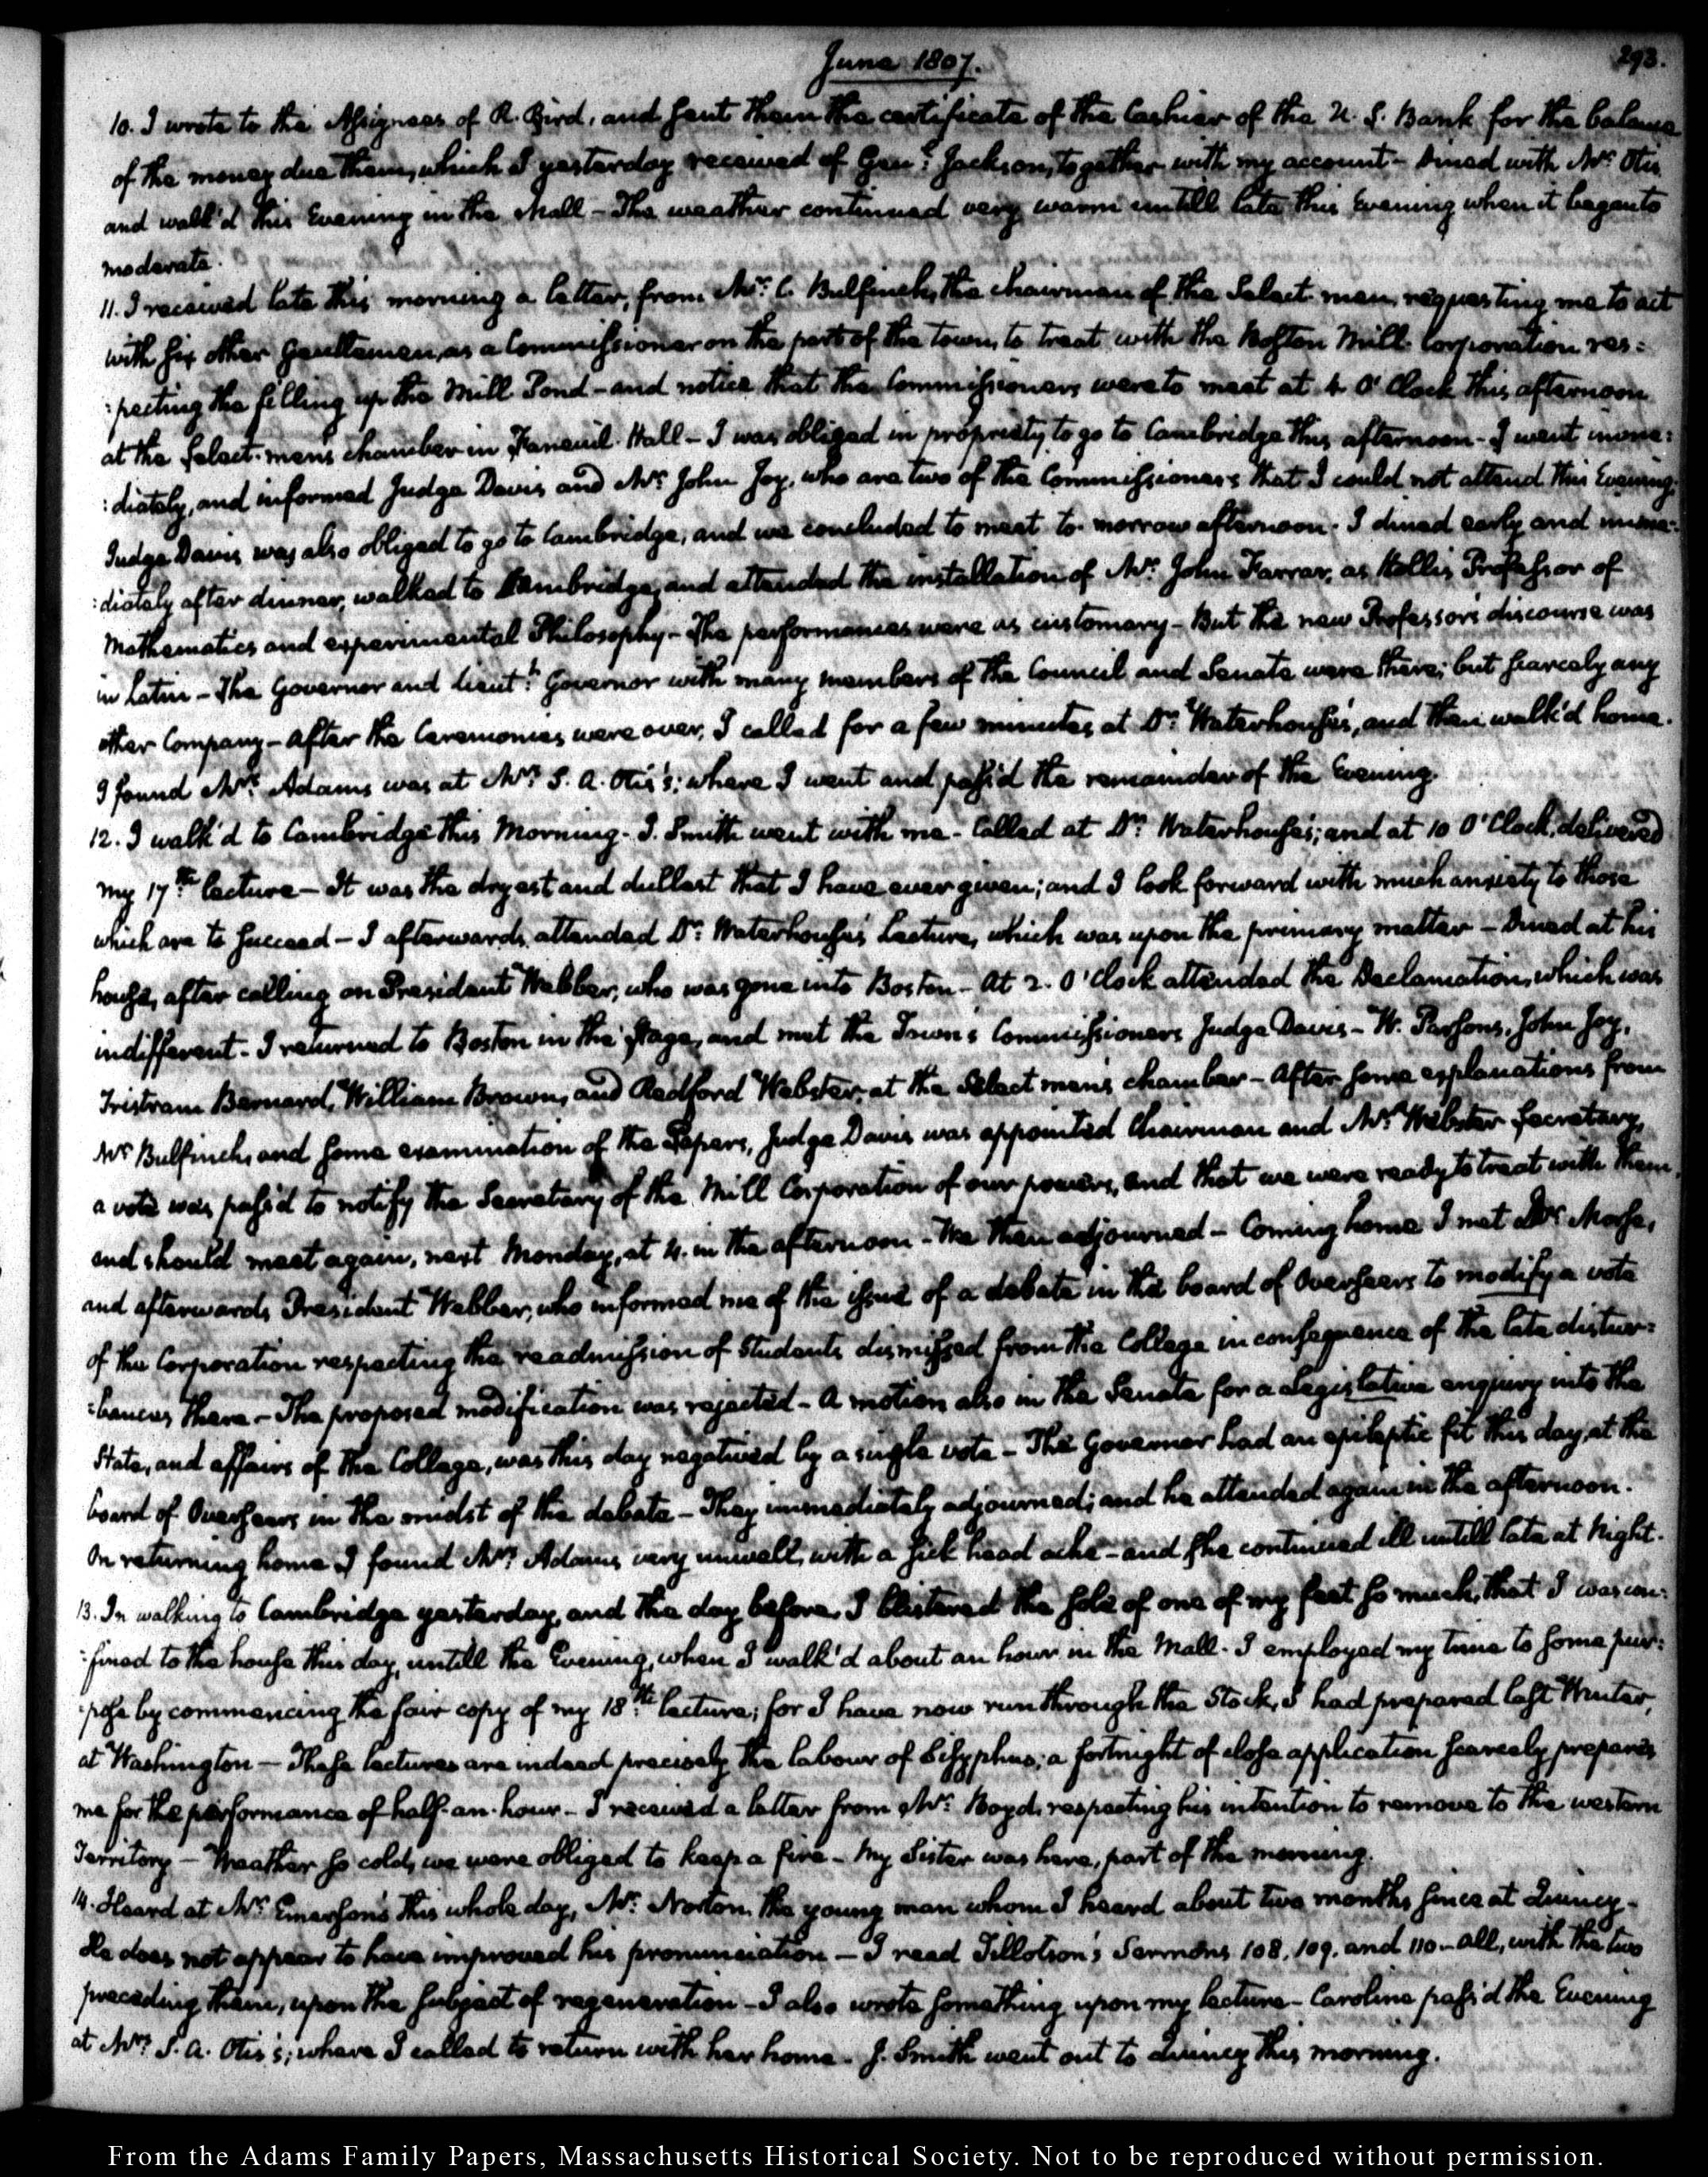 June 1807.
293.
10. I wrote to the Assignees of R. Bird, and sent them the certificate of the Cashier of the U. S. Bank for the balance
of the money due them, which I yesterday received of Genl. Jackson, together with my account - Dined with Mr. Otis
and walk'd this Evening in the Mall - The weather continued very warm untill late this Evening when it began to
moderate.
11. I received late this morning a letter, from Mr. C. Bulfinch, the chairman of the Select-men, requesting me to act
with six other Gentlemen, as a Commissioner on the part of the town, to treat with the Boston Mill-Corporation res:
:pecting the filling up the Mill Pond - and notice that the Commissioners were to meet at 4. O'Clock this afternoon
at the Select-men's chamber in Faneuil-Hall - I was obliged in propriety to go to Cambridge this afternoon - I went imme:
:diately, and informed Judge Davis and Mr. John Joy, who are two of the Commissioners that I could not attend this Evening.
Judge Davis was also obliged to go to Cambridge, and we concluded to meet to-morrow afternoon. I dined early and imme:
:diately after dinner, walked to Cambridge, and attended the installation of Mr. John Farrar, as Hollis Professor of
Mathematics and experimental Philosophy - The performances were as customary - But the new Professor's discourse was
in Latin - The Governor and lieutt. Governor with many members of the Council and Senate were there; but scarcely any
other Company - After the Ceremonies were over, I called for a few minutes at Dr. Waterhouse's, and then walk'd home.
I found Mrs. Adams was at Mrs. S. A. Otis's; where I went and pass'd the remainder of the Evening.
12. I walk'd to Cambridge this Morning. J. Smith went with me - Called at Dr. Waterhouse's; and at 10 O'Clock, delivered
my 17th. lecture - It was the dryest and dullest that I have ever given; and I look forward with much anxiety to those
which are to succeed - I afterwards attended Dr. Waterhouse's Lecture, which was upon the primary matter - Dined at his
house, after calling on President Webber, who was gone into Boston - At 2. O'Clock attended the Declamation, which was
indifferent - I returned to Boston in the Stage, and met the Town's Commissioners Judge Davis - W. Parsons, John Joy,
Tristram Barnard, William Brown, and Redford Webster, at the Select men's chamber - After some explanations from
Mr Bulfinch, and some examination of the Papers, Judge Davis was appointed Chairman and Mr. Webster Secretary,
a vote was pass'd to notify the Secretary of the Mill Corporation of our powers, and that we were ready to treat with them,
and should meet again, next Monday, at 4. in the afternoon - We then adjourned - Coming home I met Dr. Morse,
and afterwards President Webber, who informed me of the issue of a debate in the board of Overseers to modify a vote
of the Corporation respecting the readmission of Students dismissed from the College in consequence of the late distur:
:bances there - The proposed modification was rejected - A motion also in the Senate for a Legislative enquiry into the
State, and affairs of the College, was this day negatived by a single vote - The Governor had an epileptic fit this day, at the
board of Overseers in the midst of the debate - They immediately adjourned; and he attended again in the afternoon.
On returning home I found Mrs. Adams very unwell, with a sick head ache - and she continued ill untill late at Night.
13. In walking to Cambridge yesterday, and the day before, I blistered the sole of one of my feet so much, that I was con:
:fined to the house this day, untill the Evening, when I walk'd about an hour in the Mall. I employed my time to some pur:
:pose by commencing the fair copy of my 18th. lecture; for I have now run through the Stock, I had prepared last Winter,
at Washington - These lectures are indeed precisely the labour of Sisyphus; a fortnight of close application scarcely prepares
me for the performance of half-an-hour - I received a letter from Mr. Boyd, respecting his intention to remove to the western
Territory - Weather so cold, we were obliged to keep a fire - My Sister was here, part of the morning.
14. Heard at Mr. Emerson's this whole day, Mr. Norton, the young man whom I heard about two months since at Quincy -
He does not appear to have improved his pronunciation - I read Tillotson's Sermons 108, 109, and 110 - all, with the two
preceding them, upon the subject of regeneration - I also wrote something upon my lecture - Caroline pass'd the Evening
at Mrs. S. A. Otis's; where I called to return with her home. J. Smith went out to Quincy this morning.
From the Adams Family Papers, Massachusetts Historical Society. Not to be reproduced without permission.